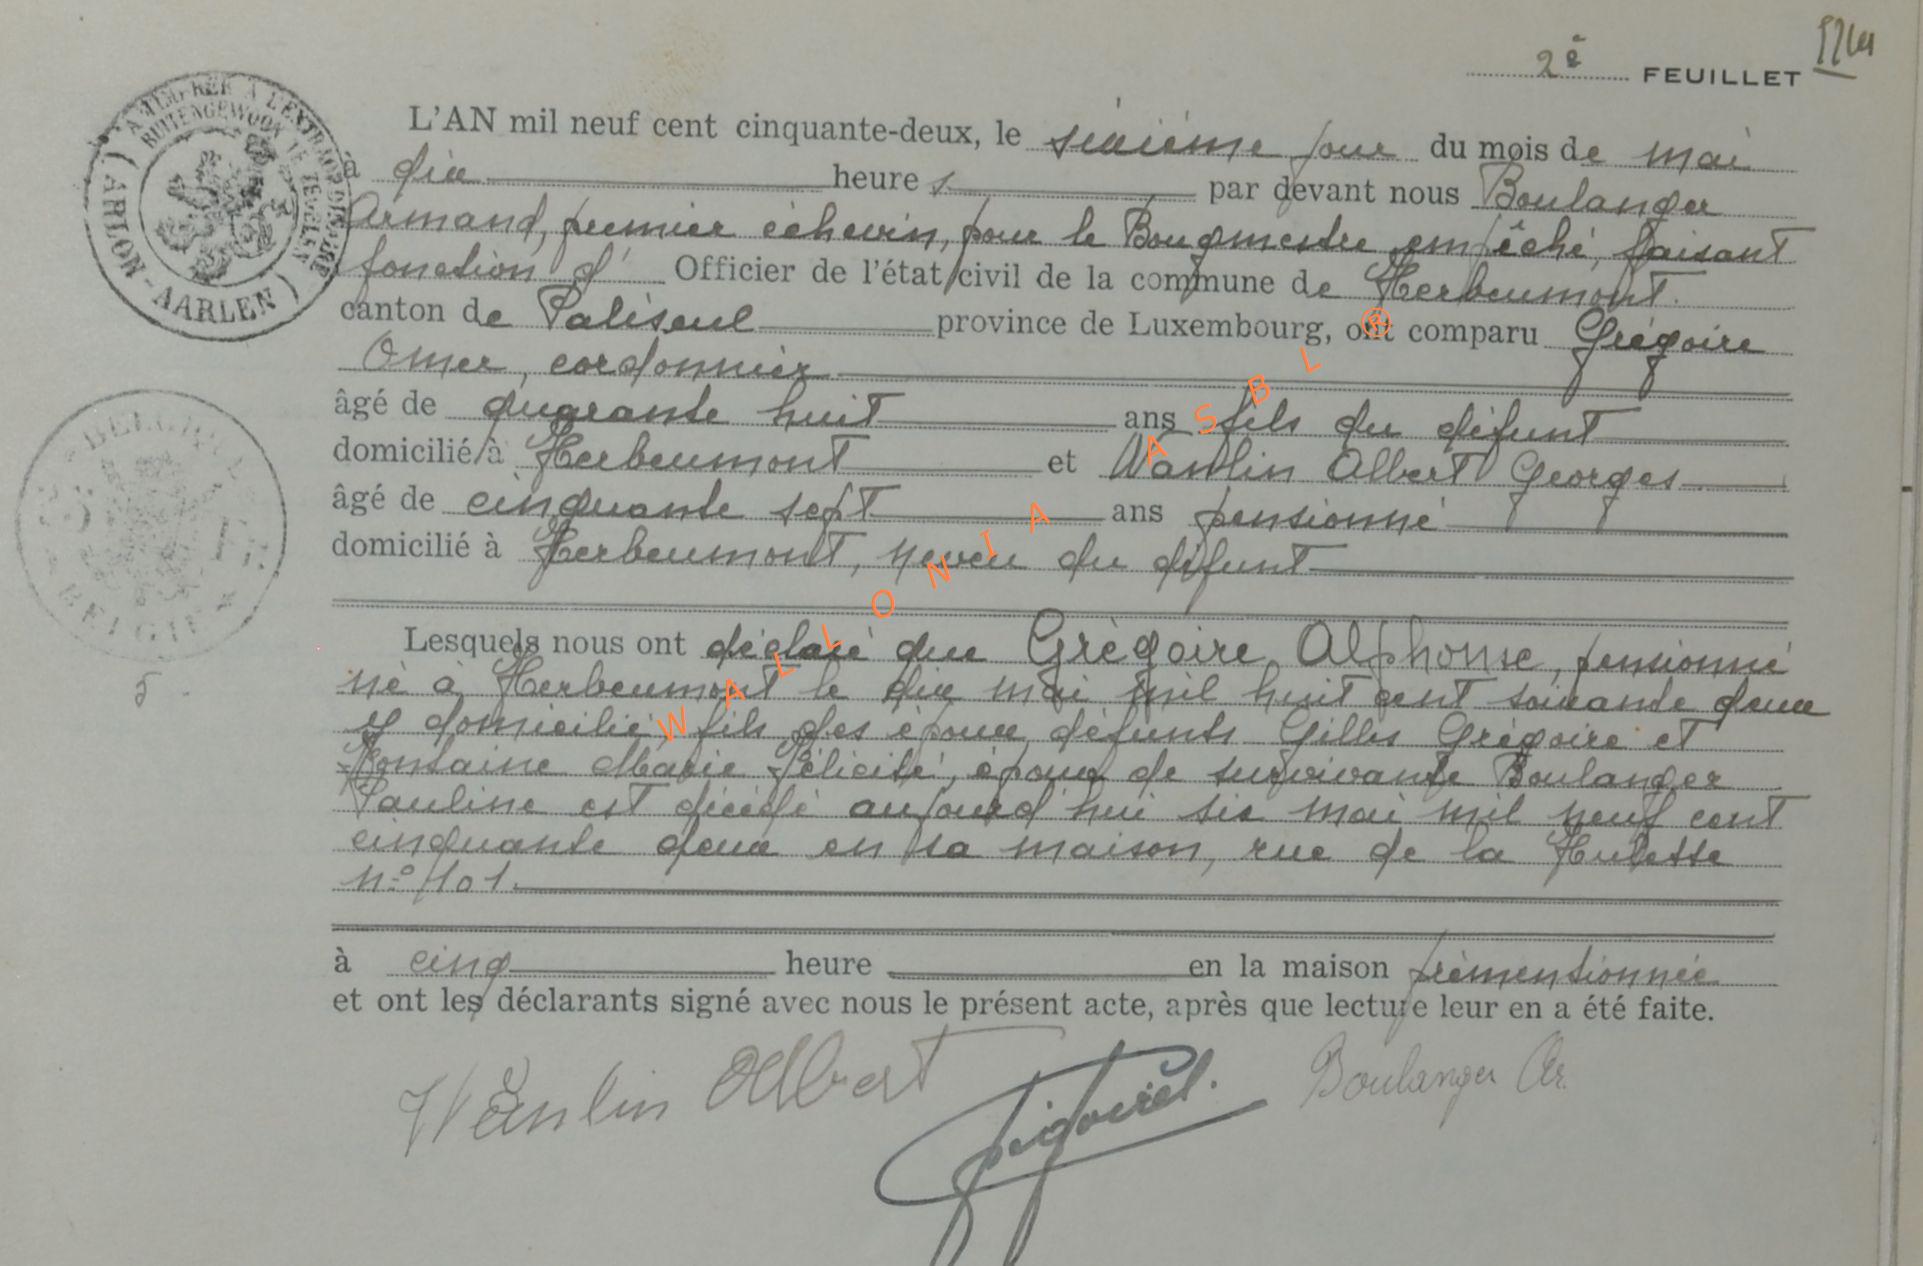 2è FEUILLET
L'AN mil neuf cent cinquante-deux, le sixième jour du mois de mai
à dix heures par devant nous Boulanger
Armand, premier échevin, pour le Bougmestre empêché, faisant
fonction d' Officier de l'état civil de la commune de Herbeumont.
canton de Paliseul province de Luxembourg, ont comparu Grégoire
Omer, cordonnier
âgé de quarante huit ans fils du défunt
domicilié à Herbeumont et Wanlin Albert Georges
âgé de cinquante sept ans pensionné
domicilié à Herbeumont, neveu du défunt
Lesquels nous ont déclaré que Grégoire Alphonse, pensionné
né à Herbeumont le dix mai mil huit cent soixante deux
y domicilié, fils des époux défunts Gilles Grégoire et
Fontaine Marie Félicité, époux de survivante Boulanger
Pauline est décédé aujourd'hui six mai mil neuf cent
cinquante deux en sa maison, rue de la Hulette
n° 101.
à cinq heure en la maison prémentionnée
et ont les déclarants signé avec nous le présent acte, après que lecture leur en a été faite.
Wanlin Albert Boulanger Ar.
ARLON - AARLEN
BELGIE
5
WALLONIA ASBL ®